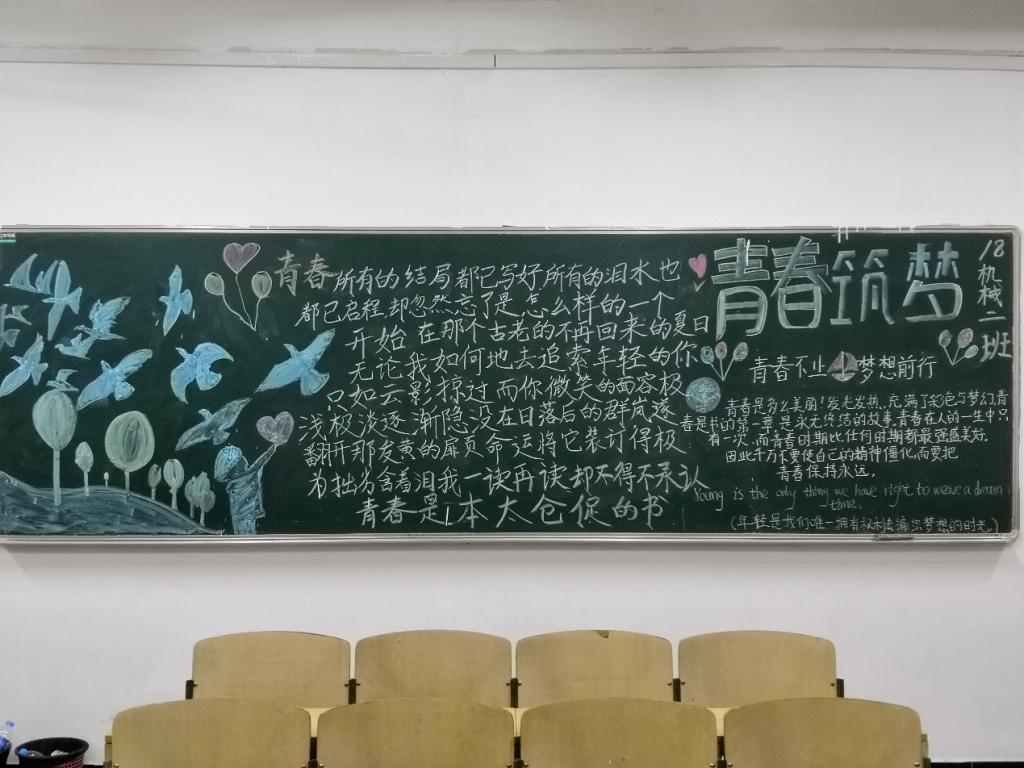 青春
所有的结局都已写好所有的泪水也
都已启程却忽然忘了是怎么样的一个
开始在那个古老的不再回来的夏日
无论我如何地去追索年轻的你
只如云影掠过而你微笑的面容极
浅极淡逐渐隐没在日落后的群岚遂
翻开那发黄的扉页命运将它装订得极
为拙劣含着泪我一读再读却不得不承认
青春是1本太仓促的书
青春筑梦
18机械二班
青春不止 梦想前行
青春是多么美丽!发光发热,充满了彩色与梦幻青
春是书的第一章是永无终结的故事,青春在人的一生中只
有一次,而青春时期比任何时期都最强盛美好
因此千万不要使自己的精神僵化,而要把
青春保持永远。
Young is the only thing we have right to weave a dream
time.
(年轻是我们唯一拥有权利去编织梦想的时光)